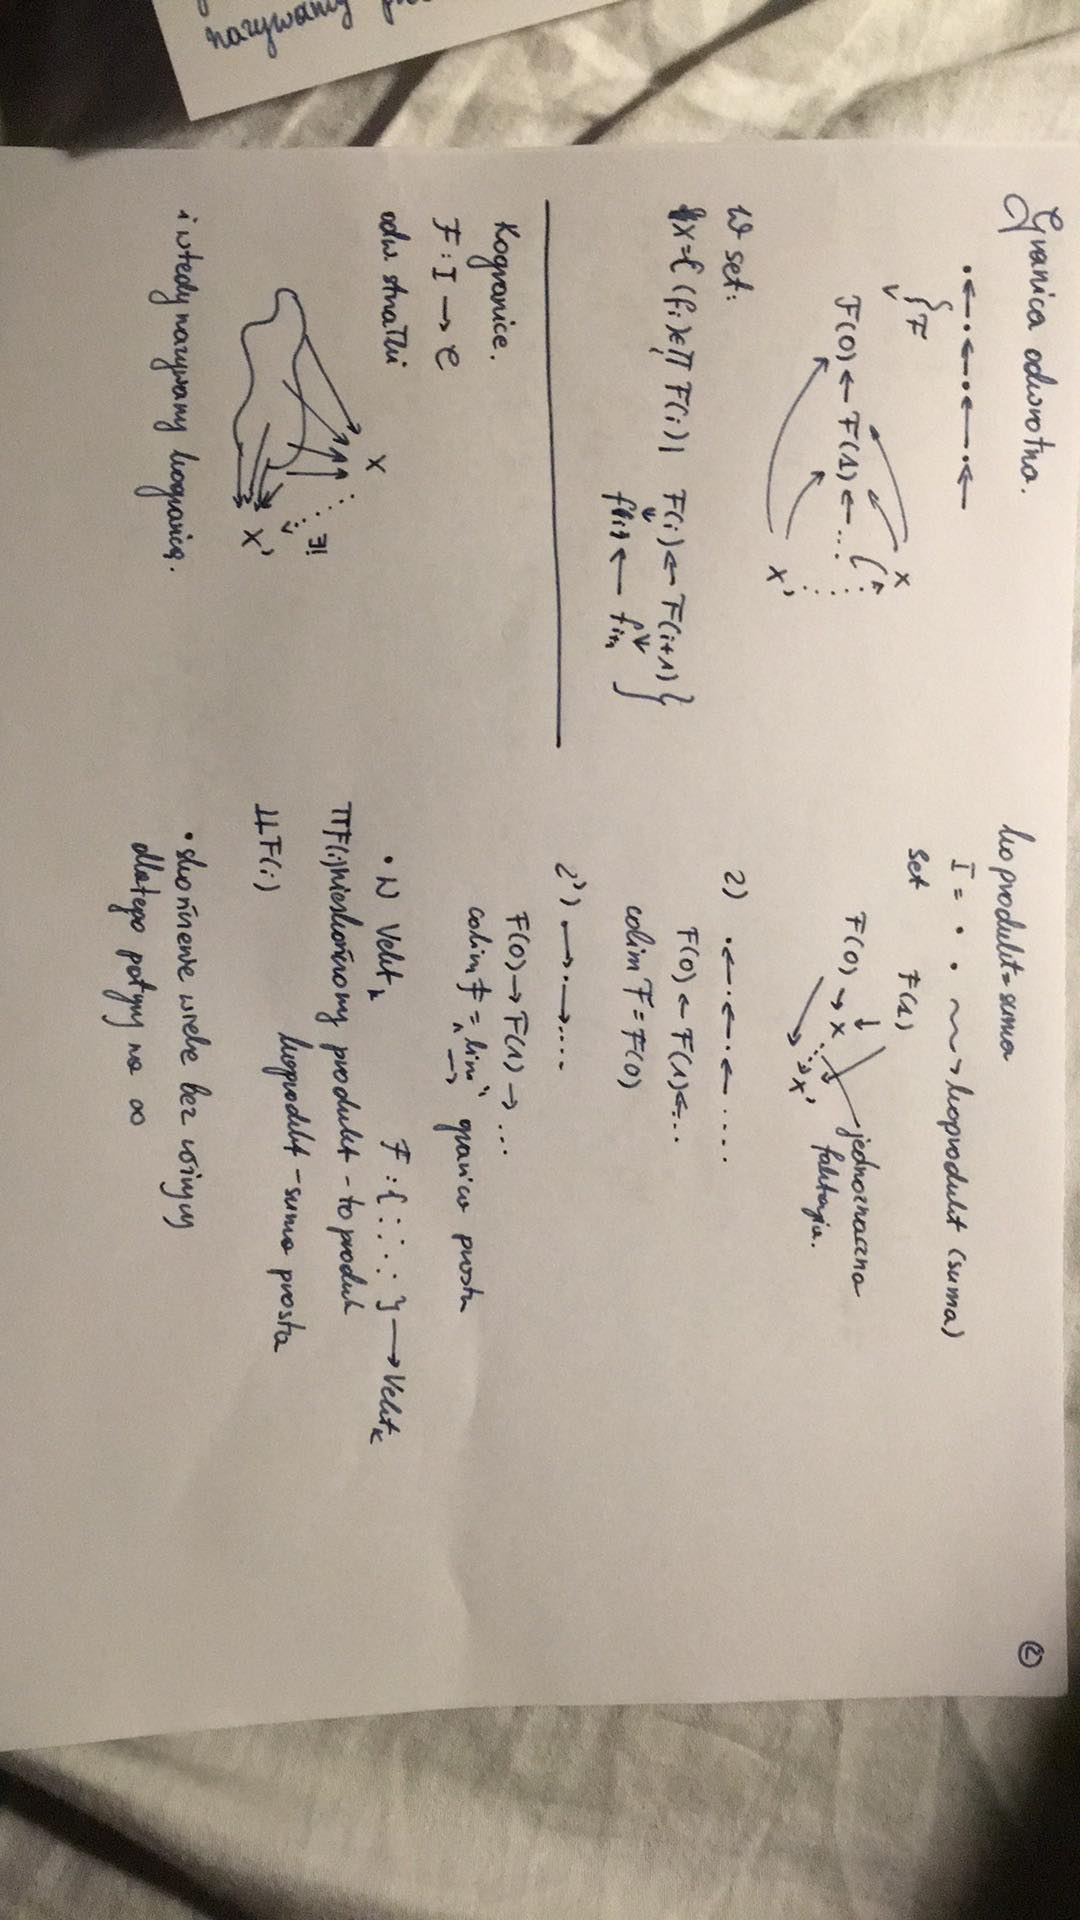 nazywamy
Granica odwrotna.
• ← • ← • ← • ←
F
F(0) ← F(1) ← ...
X
X'
W set:
X = { (f_i) ∈ Π F(i) | F(i) ← F(i+1)
f(i) ← f_{i+1} }
Kogranice.
F : I → C
odw. strzałki
X
∃!
X'
i wtedy nazywamy kogranicą.
②
koprodukt = suma
I = • • ⇝ koprodukt (suma)
Set F(1)
F(0) → X
X'
jednoznaczna
faktoryzacja.
2) • ← • ← • ← .....
F(0) ← F(1) ← ...
colim F = F(0)
2') → • → • → ....
F(0) → F(1) → ...
colim F = "lim→" granica prosta
• W Vekt_k F : { : : : : } → Vekt_k
ΠF(i) nieskończony produkt - to produkt
koprodukt - suma prosta
∐F(i)
• skończenie wiele bez różnicy
dlatego patrzymy na ∞